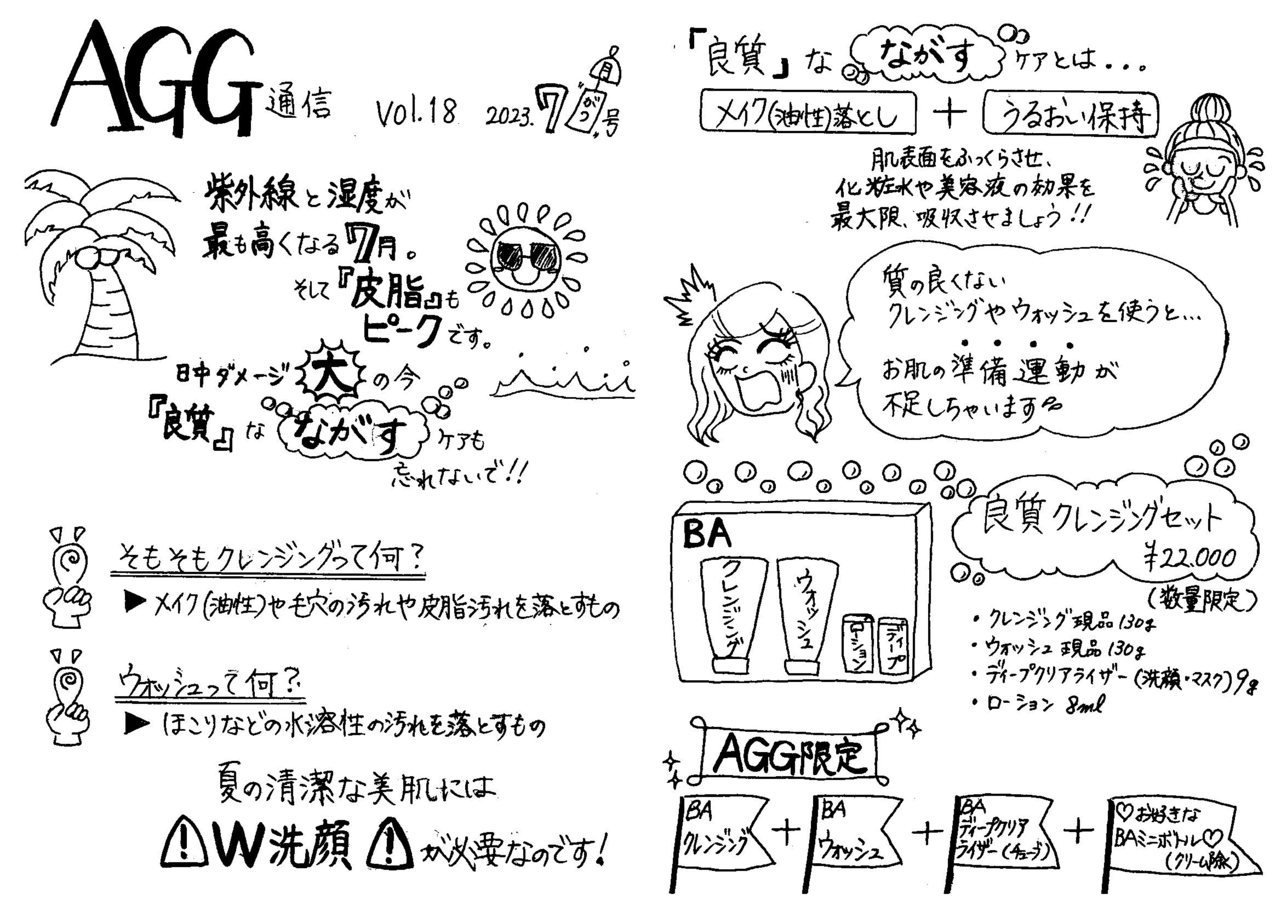 AGG通信 vol.18 2023.7月"がつ"号
紫外線と湿度が
最も高くなる7月。
そして『皮脂』も
ピークです。
日中ダメージ大の今
『良質』なながすケアも
忘れないで!!
そもそもクレンジングって何?
▶メイク(油性)や毛穴の汚れや皮脂汚れを落とすもの
ウォッシュって何?
▶ほこりなどの水溶性の汚れを落とすもの
夏の清潔な美肌には
W洗顔が必要なのです!
『良質』なながすケアとは...
メイク(油性)落とし+うるおい保持
肌表面をふっくらさせ、
化粧水や美容液の効果を
最大限、吸収させましょう!!
質の良くない
クレンジングやウォッシュを使うと...
お肌の準備運動が
不足しちゃいます
良質クレンジングセット
¥22.000
(数量限定)
BA
クレンジング
ウォッシュ
ローション
ディープ
・クレンジング現品130g
・ウォッシュ現品130g
・ディープクリアライザー(洗顔・マスク)9g
・ローション 8ml
AGG限定
BA
クレンジング
+
BA
ウォッシュ
+
BA
ディープクリア
ライザー(チューブ)
+
♡お好きな
BAミニボトル♡
(クリーム除く)